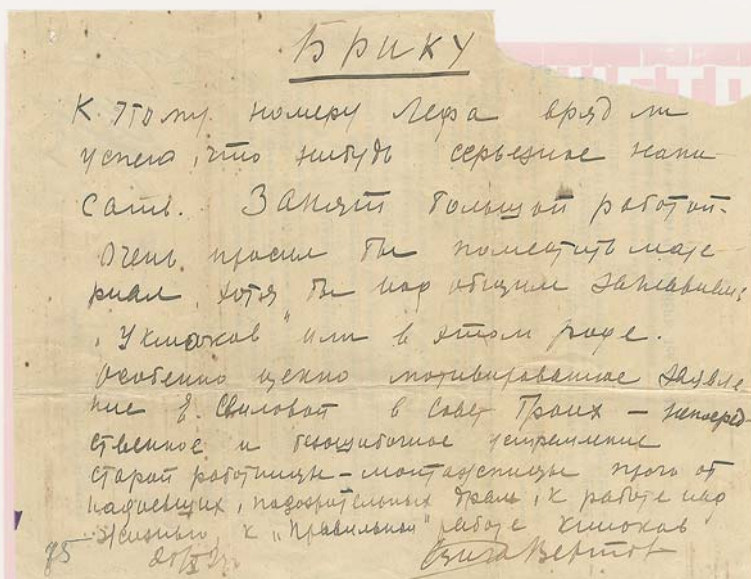 Брику
К этому номеру Лефа вряд ли
успею, что нибудь серьезное напи
сать. Занят большой работой.
Очень просил бы поместить мате
риал, хотя бы под общим заглавием
"У киноков" или в этом роде.
Особенно ценно мотивированное заявле
ние Е. Свиловой в Совет Троих – непосред-
ственное и безошибочное устремление
старой работницы-монтажницы прочь от
надоевших, подозрительных драм, к работе над
жизнью, к "Правильной" работе киноков
Дзига Вертов